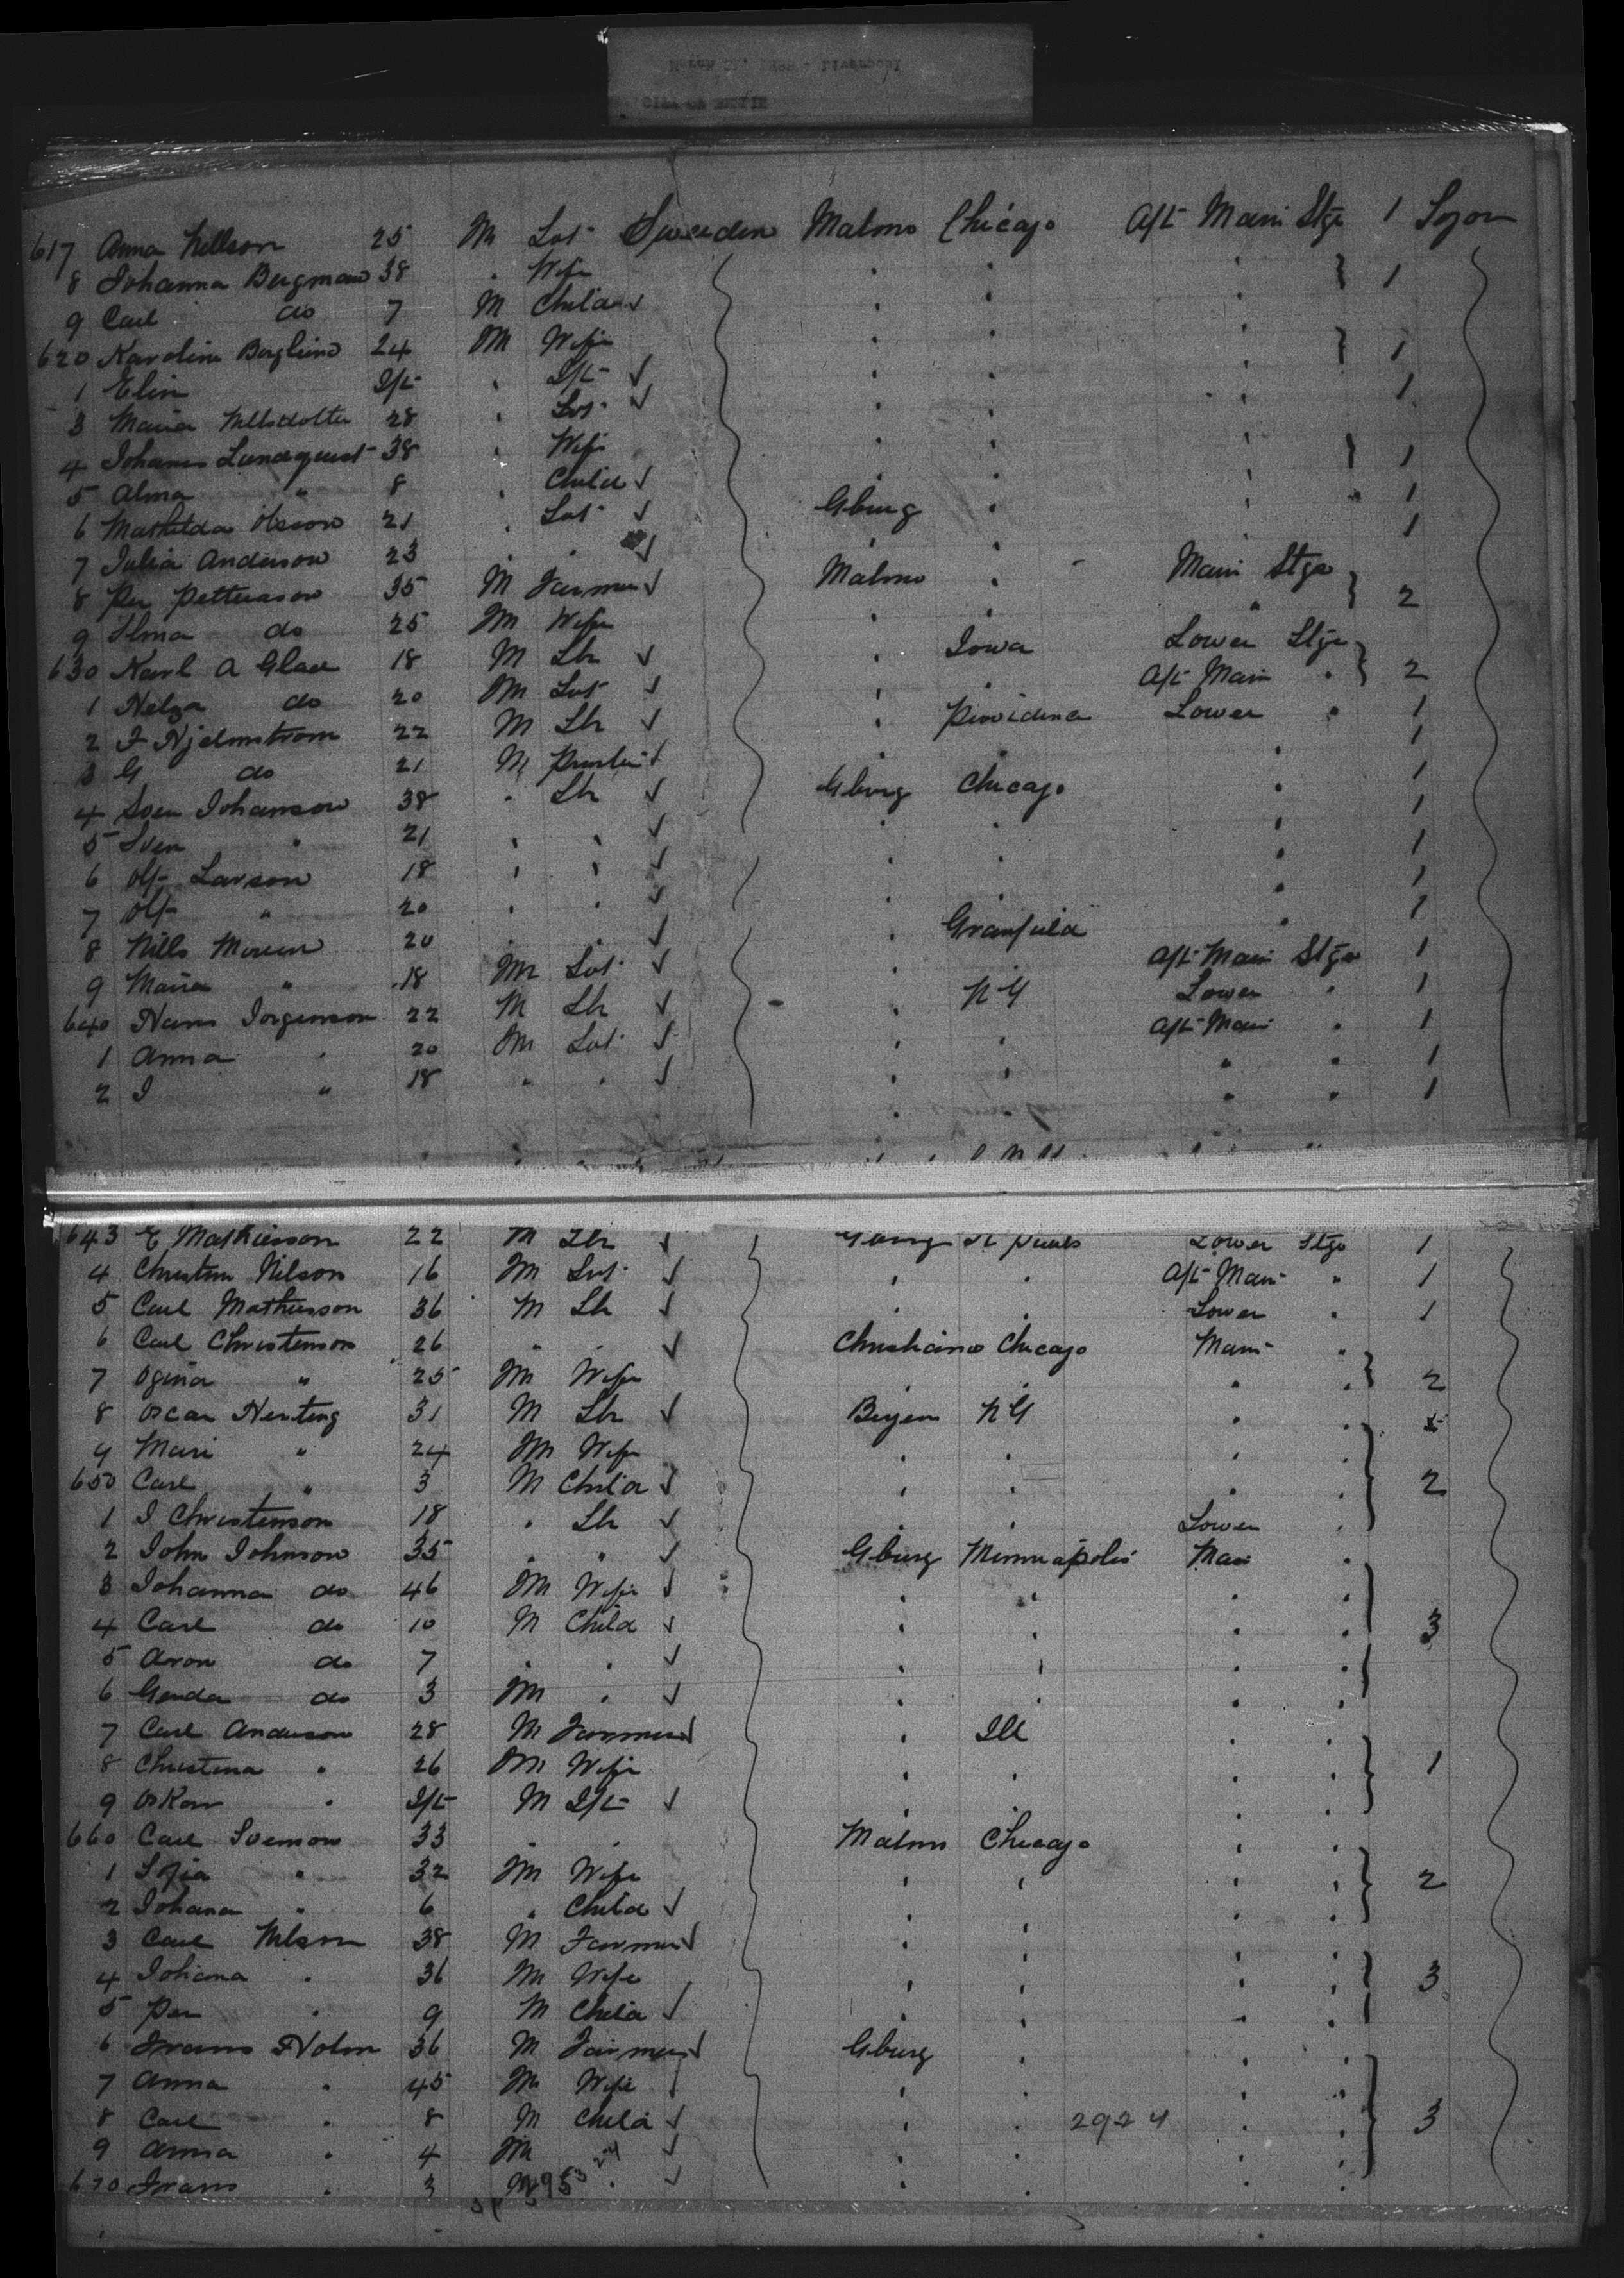 617 Anna Nillson 25 M Svt Sweeden Malmo Chicago Aft Main Stge 1 Sojon
8 Johanna Bergman 38 " Wife " " " 1
9 Carl do 7 M Child " " "
620 Karolina Berglind 24 M Wife " " " 1
1 Elin Ift " Ift " " "
3 Maria Nilsdotter 28 " Svt " " " 1
4 Johanna Lundquist 38 " Wife " " " 1
5 Alma " 8 " Child " " "
6 Mathilda Olsson 21 " Svt Gburg " " 1
7 Julia Anderson 23 " " " " " 1
8 Per Petterason 35 M Farmer Malmo " Main Stge
9 Ilma do 25 M Wife " " " 2
630 Karl A Glad 18 M Lbr " Iowa Lower Stge
1 Helga do 20 M Svt " " Aft Main " 2
2 F Hjelmstrom 22 M Lbr " Providence Lower " 1
3 G do 21 M " " " 1
4 Sven Johanson 38 " Lbr Gburg Chicago " 1
5 Sven " 21 " " " " " 1
6 Olf Larson 18 " " " " " 1
7 Olf " 20 " " " " " 1
8 Nills 20 " " " " 1
9 Maria " 18 M Svt " " Aft Main Stge 1
640 Hans Jorgenson 22 M Lbr " N Y Lower " 1
1 Anna " 20 M Svt " " Aft Main " 1
2 J " 18 " " " " " " 1
643 E Mathiesson 22 M Lbr St Pauls Lower Stge 1
4 Christin Nilson 16 M Svt " " Aft Main " 1
5 Carl Mathiesson 36 M Lbr " " Lower " 1
6 Carl Christenson 26 " " Christiania Chicago Main "
7 Ogina " 25 M Wife " " " " 2
8 Oscar Herting 31 M Lbr Bergen N Y " "
9 Mari " 24 M Wife " " " "
650 Carl " 3 M Child " " " " 2
1 J Christenson 18 " Lbr " " Lower "
2 John Johnson 35 " " Gburg Minneapolis Main "
3 Johanna do 46 M Wife " " " "
4 Carl do 10 M Child " " " " 3
5 Aron do 7 " " " " " "
6 Gerda do 3 M " " " " "
7 Carl Anderson 28 M Farmer " Ill " "
8 Christina " 26 M Wife " " " " 1
9 Oskar " Ift M Ift " " " "
660 Carl Svenson 33 " " Malmo Chicago " "
1 Sofia " 32 M Wife " " " " 2
2 Johana " 6 " Child " " " "
3 Carl Nilson 38 M Farmer " " " "
4 Johana " 36 M Wife " " " " 3
5 Per " 9 M Child " " " "
6 Frans Holm 36 M Farmer Gburg " " "
7 Anna " 45 M Wife " " " "
8 Carl " 8 M Child " " 2924 " " 3
9 Anna " 4 M " " " "
670 Frans " 3 M " " " " "